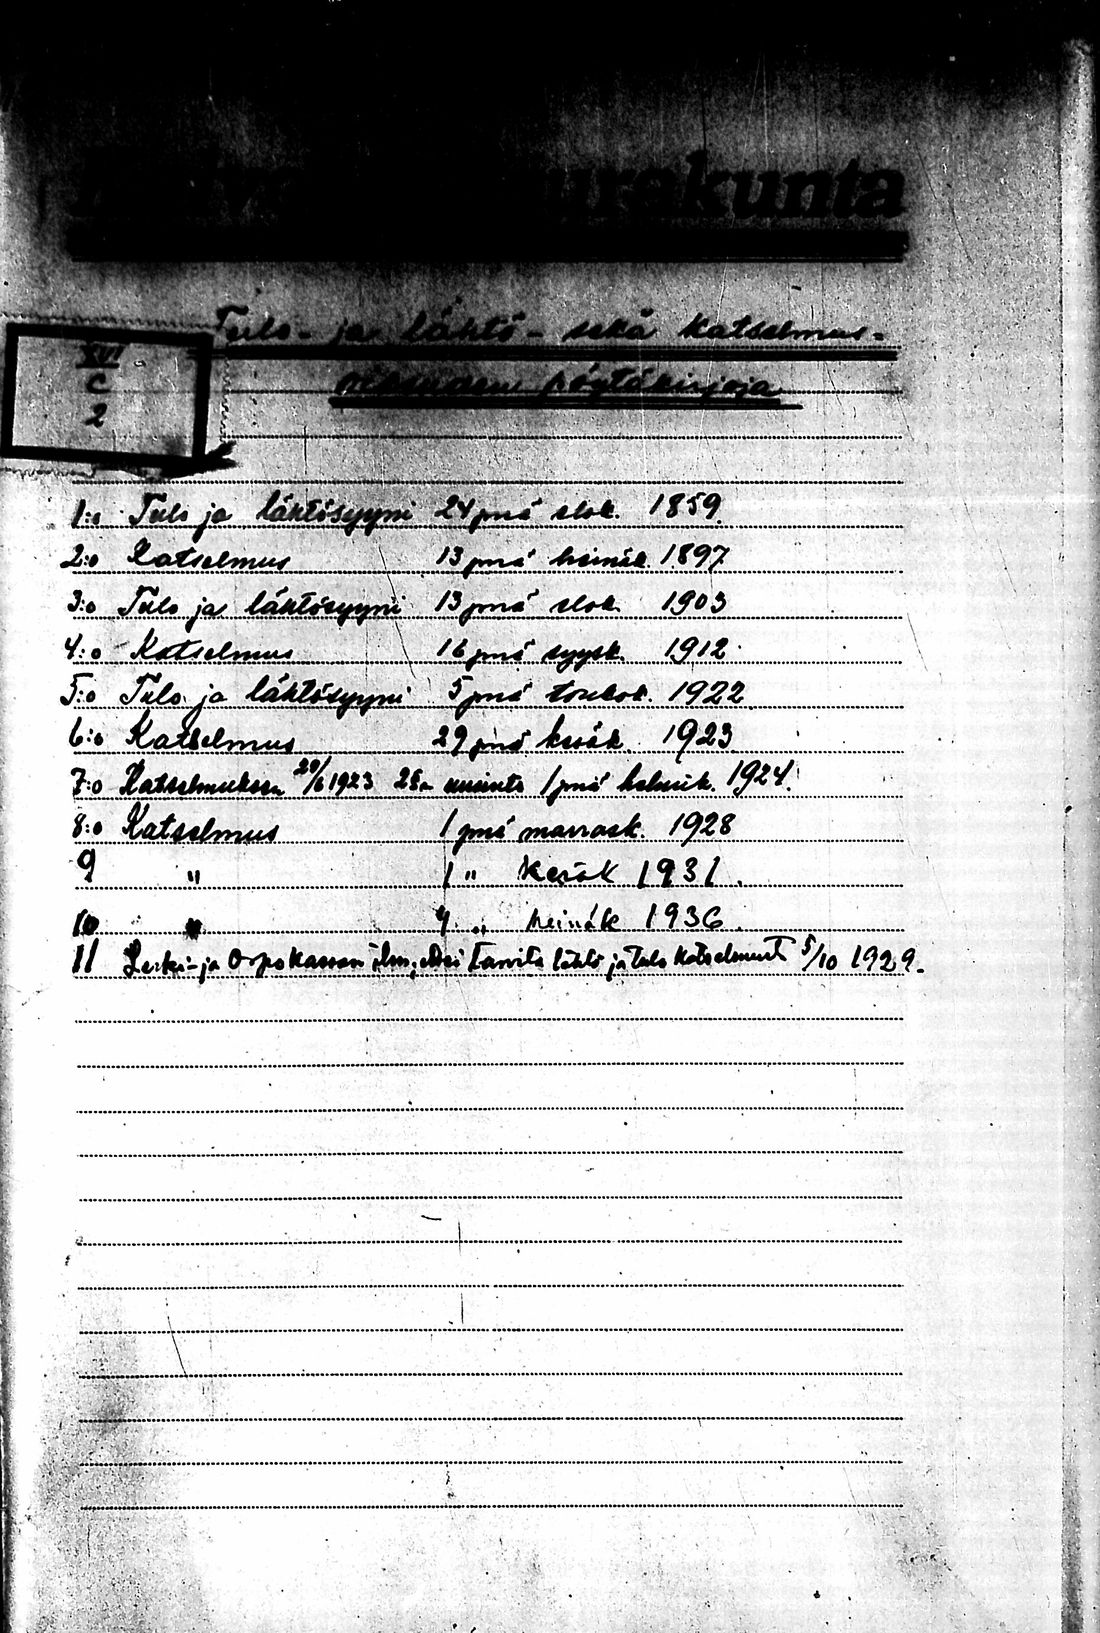 urakunta
Tulo- ja lähtö- sekä katselmus-
pöytäkirjoja
XVI
C
2
1:o Tulo ja lähtösyyni 24 pnä elok. 1859.
2:o Katselmus 13 pnä heinäk. 1897
3:o Tulo ja lähtösyyni 13 pnä elok. 1903
4:o Katselmus 16 pnä syysk. 1912
5:o Tulo ja lähtösyyni 5 pnä toukok. 1922
6:o Katselmus 29 pnä kesäk. 1923
7:o Katselmuksen 29/6 1923 1 pnä helmik. 1924.
8:o Katselmus 1 pnä marrask. 1928
9 " 1 " Kesäk 1931.
10 " 4 " heinäk 1936.
11 Leski- ja Orpokassan ilm, ettei tarvita lähtö ja tulo Katselmust 5/10 1929.